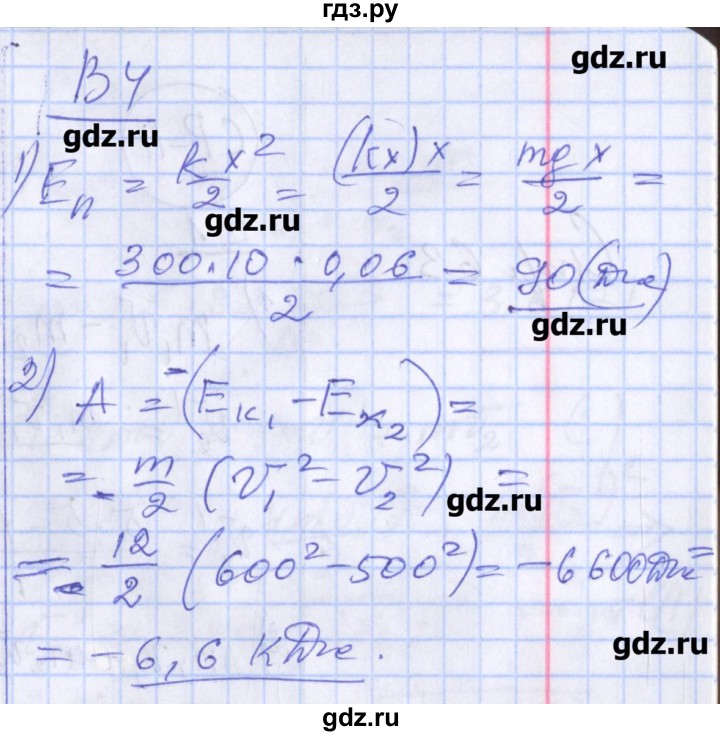 гдз.ру
gdz.ru
В4
gdz.ru
1) Eп = k x²/2 = (kx)x/2 = mg x/2 =
gdz.ru
= 300·10·0,06/2 = 90 (Дж)
gdz.ru
2) A = -(Eк₁ - Eк₂) =
= - m/2 (v₁² - v₂²) =
gdz.ru
= - 12/2 (600² - 500²) = -6600Дж =
= -6,6 кДж.
gdz.ru
gdz.ru